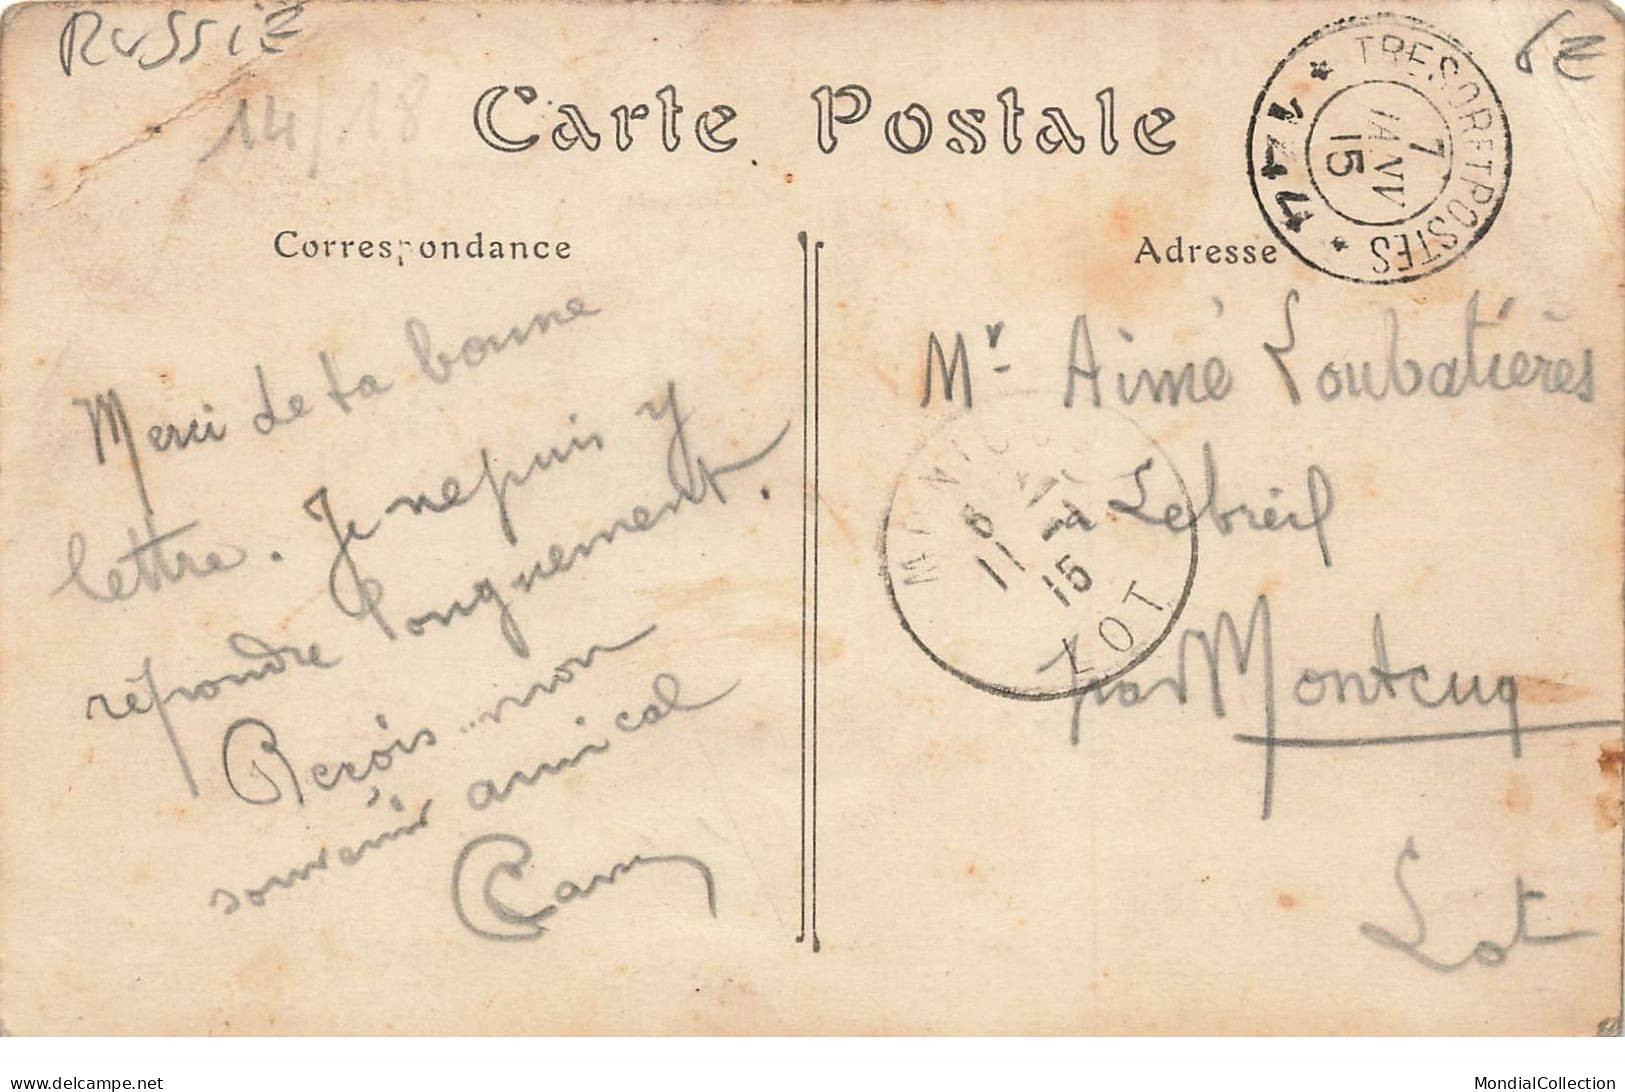 RUSSIE
14/18
6€
Carte Postale
TRESOR ET POSTES
7
JANV
15
Correspondance
Adresse
Merci de ta bonne
lettre. Je ne puis y
répondre longuement.
Reçois mon
souvenir amical
Mr Aimé Loubatières
à Lebreil
par Montcuq
Lot
15
LOT
delcampe.net
MondialCollection